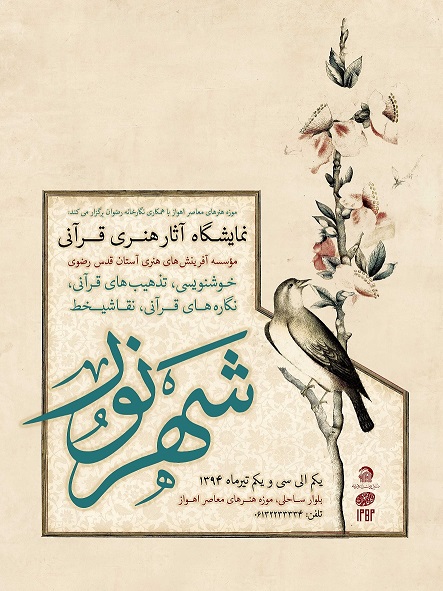 موزه هنرهای معاصر اهواز با همکاری نگارخانه رضوان برگزار می کند:
نمایشگاه آثار هنری قرآنی
مؤسسه آفرینش‌های هنری آستان قدس رضوی
خوشنویسی، تذهیب‌های قرآنی،
نگاره‌های قرآنی، نقاشیخط
شهر نور
یکم الی سی و یکم تیرماه ۱۳۹۴
بلوار ساحلی، موزه هنرهای معاصر اهواز
تلفن: ۰۶۱۳۲۲۳۳۳۳۴